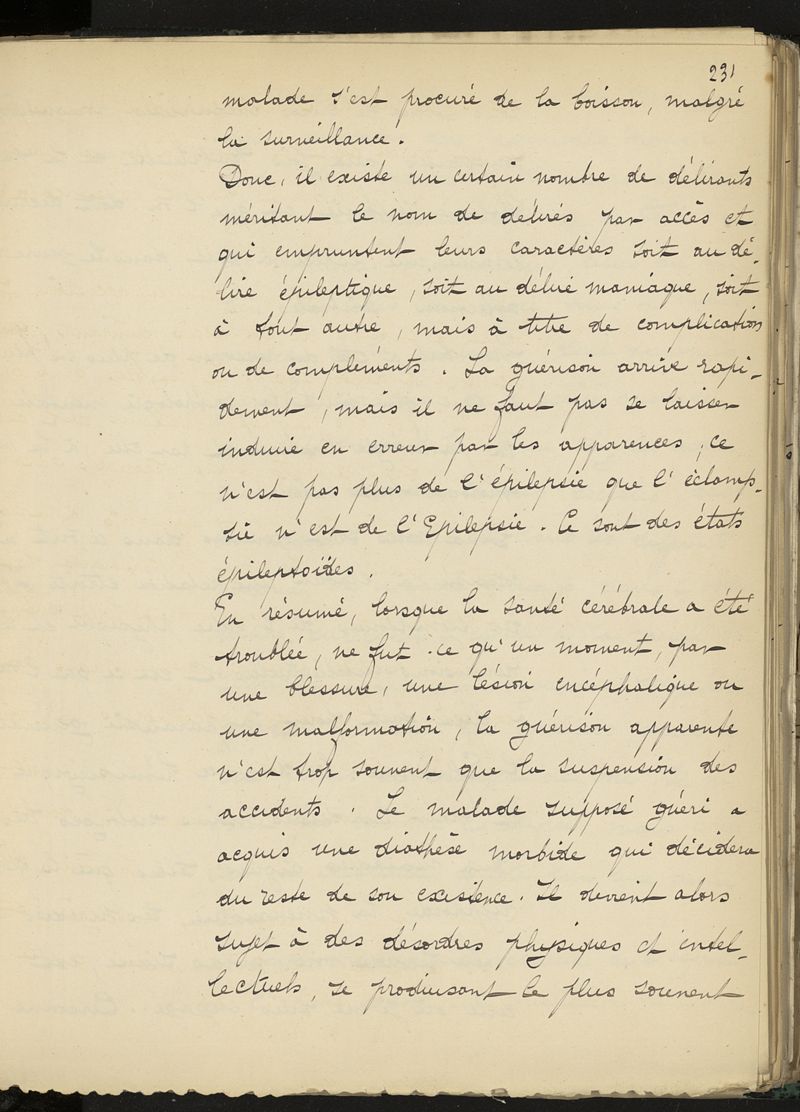 231
malade s'est procuré de la boisson, malgré
la surveillance.
Donc, il existe un certain nombre de délirants
méritant le nom de délirés par accès et
qui empruntent leurs caractères soit au dé-
lire épileptique, soit au délire maniaque, soit
à tout autre, mais à titre de complication
ou de compléments. La guérison arrive rapi-
dement, mais il ne faut pas se laisser
induire en erreur par les apparences, ce
n'est pas plus de l'épilepsie que l'éclamp-
sie n'est de l'Epilepsie. Ce sont des états
épileptoïdes.
En résumé, lorsque la santé cérébrale a été
troublée, ne fut-ce qu'un moment, par
une blessure, une lésion encéphalique ou
une malformation, la guérison apparente
n'est trop souvent que la suspension des
accidents. Le malade supposé guéri a
acquis une diathèse morbide qui décidera
du reste de son existence. Il devient alors
sujet à des désordres physiques et intel-
lectuels, se produisant le plus souvent